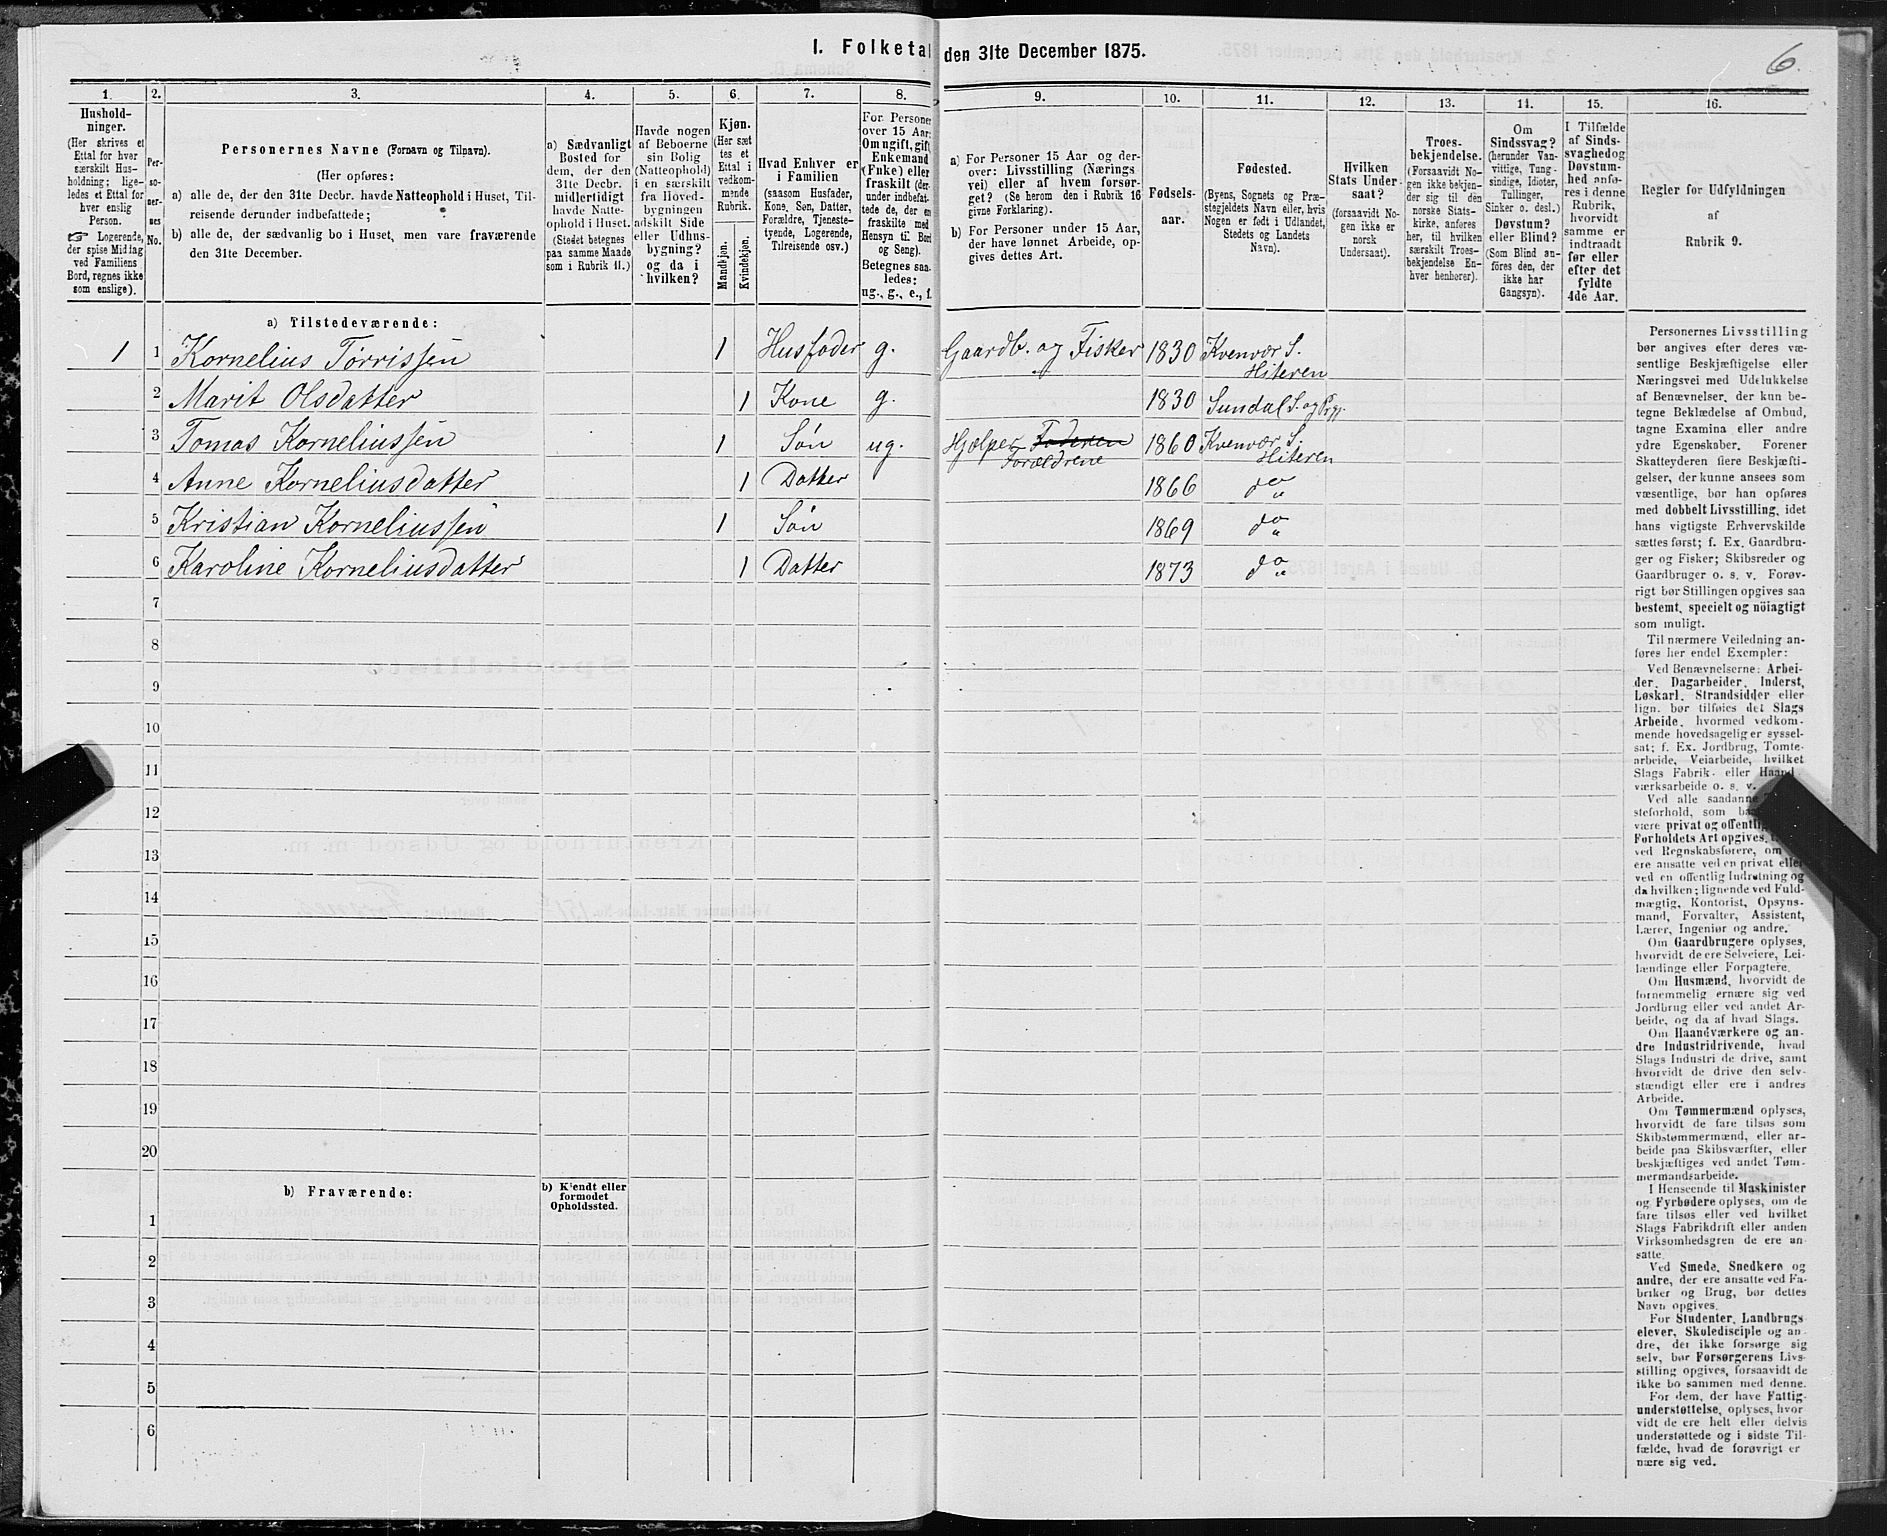 I. Folketal den 31te December 1875.
6.
1.
Hushold-
ninger.
(Her skrives et
Ettal for hver
særskilt Hus-
holdning; lige-
ledes et Ettal for
hver enslig
Person.
☞ Logerende,
der spise Middag
ved Familiens
Bord, regnes ikke
som enslige).
2.
Per-
so-
ner-
nes
No.
3.
Personernes Navne (Fornavn og Tilnavn).
(Her opføres:
a) alle de, der den 31te Decbr. havde Natteophold i Huset, Til-
reisende derunder indbefattede;
b) alle de, der sædvanlig bo i Huset, men vare fraværende
den 31te December.
4.
a) Sædvanligt
Bosted for
dem, der den
31te Decbr.
midlertidigt
havde Natte-
ophold i Huset.
(Stedet betegnes
paa samme Maade
som i Rubrik 11.)
5.
Havde nogen
af Beboerne
sin Bolig
(Natteophold)
i en særskilt
fra Hoved-
bygningen
adskilt Side
eller Udhus-
bygning?
og da i
hvilken?
6.
Kjøn.
(Her sæt
tes et
Ettal i
vedkom-
mende
Rubrik.
Mandkjøn.
Kvindekjøn.
7.
Hvad Enhver er
i Familien
(saasom Husfader,
Kone, Søn, Datter,
Forældre, Tjeneste-
tyende, Logerende,
Tilreisende osv.)
8.
For Personer
over 15 Aar:
Om ugift, gift
Enkemand
(Enke) eller
fraskilt (der-
under indbefat-
tede de, der en
fraskilte med
Hensyn til Bord
og Seng).
Betegnes saa-
ledes:
ug., g., e., f.
9.
a) For Personer 15 Aar og der-
over: Livsstilling (Nærings
vei) eller af hvem forsør-
get? (Se herom den i Rubrik 16
givne Forklaring).
b) For Personer under 15 Aar,
der have lønnet Arbeide, op-
gives dettes Art.
10.
Fødsels-
aar.
11.
Fødested.
(Byens, Sognets og Præ-
stegjeldets Navn eller, hvis
Nogen er født i Udlandet,
Stedets og Landets
Navn).
12.
Hvilken
Stats Under-
saat?
(forsaavidt No-
gen ikke er
norsk
Undersaat).
13.
Troes-
bekjendelse.
(Forsaavidt No-
gen ikke bekjen-
der sig til den
norske Stats-
kirke, anføres
her, til hvilken
særskilt Troes-
bekjendelse En-
hver henhører).
14.
Om
Sindssvag?
(herunder Van-
vittige, Tung-
sindige, Idioter,
Tullinger,
Sinker o. desl.)
Døvstum?
eller Blind?
(Som Blind an-
føres den, der
ikke har
Gangsyn).
15.
I Tilfælde
af Sinds-
svaghed og
Døvstum-
hed anfø-
res i denne
Rubrik,
hvorvidt
samme er
indtraadt
før eller
efter det
fyldte
4de Aar.
16.
Regler for Udfyldningen
af
Rubrik 9.
a) Tilstedeværende:
1 1 Kornelius Torrissen 1 Husfader g. Gaardb. og Fisker 1830 Kvenvær S.
Hiteren
2 Marit Olsdatter 1 Kone g. 1830 Sundal S. og Prgj.
3 Tomas Korneliussen 1 Søn ug. Hjælper Faderen 1860 Kvenvær S.
Forældrene Hiteren
4 Anne Korneliusdatter 1 Datter 1866 do
5 Kristian Korneliussen 1 Søn 1869 do
6 Karoline Korneliusdatter 1 Datter 1873 do
7
8
9
10
11
12
13
14
15
16
17
18
19
20
b) Fraværende:
b) Kjendt eller
formodet
Opholdssted.
1
2
3
4
5
6
Personernes Livsstilling
bør angives efter deres væ-
sentlige Beskjæftigelse eller
Næringsvei med Udelukkelse
af Benævnelser, der kun be-
tegne Beklædelse af Ombud,
tagne Examina eller andre
ydre Egenskaber. Forener
Skatteyderen flere Beskjæfti-
gelser, der kunne ansees som
væsentlige, bør han opføres
med dobbelt Livsstilling, idet
hans vigtigste Erhvervskilde
sættes først; f. Ex. Gaardbru-
ger og Fisker; Skibsreder og
Gaardbruger o. s. v. Forøv-
rigt bør Stillingen opgives saa
bestemt, specielt og nöiagtigt
som muligt.
Til nærmere Veiledning an-
føres her endel Exempler:
Ved Benævnelserne: Arbei-
der, Dagarbeider, Inderst,
Løskarl, Strandsidder eller
lign. bør tilføies det Slags
Arbeide, hvormed vedkom-
mende hovedsagelig er syssel-
sat; f. Ex. Jordbrug, Tomte-
arbeide, Veiarbeide, hvilket
Slags Fabrik- eller Haand
værksarbeide o. s. v.
Ved alle saadanne
steforhold, som
være privat og offentlig
Forholdets Art opgives,
ved Regnskabsførere, om
ere ansatte ved en privat eller
ved en offentlig Indretning og
da hvilken; lignende ved Fuld-
mægtig, Kontorist, Opsyns-
mand, Forvalter, Assistent,
Lærer, Ingeniør og andre.
Om Gaardbrugere oplyses,
hvorvidt de ere Selveiere, Lei-
lændinge eller Forpagtere.
Om Husmænd, hvorvidt de
fornemmelig ernære sig ved
Jordbrug eller ved andet Ar-
beide, og da af hvad Slags.
Om Haandværkere og an-
dre Industridrivende, hvad
Slags Industri de drive, samt
hvorvidt de drive den selv-
stændigt eller ere i andres
Arbeide.
Om Tømmermænd oplyses,
hvorvidt de fare tilsøs som
Skibstømmermænd, eller ar-
beide paa Skibsværfter, eller
beskjæftiges ved andet Tøm-
mermandsarbeide.
I Henseende til Maskinister
og Fyrbødere oplyses, om de
fare tilsøs eller ved hvilket
Slags Fabrikdrift eller anden
Virksomhedsgren de ere an-
satte.
Ved Smede, Snedkere og
andre, der ere ansatte ved Fa-
briker og Brug, bør dettes
Navn opgives.
For Studenter, Landbrugs
elever, Skoledisciple og an-
dre, der ikke forsørge sig
selv, bør Forsørgerens Livs-
stilling opgives, forsaavidt de
ikke bo sammen med denne.
For dem, der have Fattig-
understøttelse, oplyses, hvor
vidt de ere helt eller delvis
understøttede og i sidste Til-
fælde, hvad de forøvrigt er
nære sig ved.